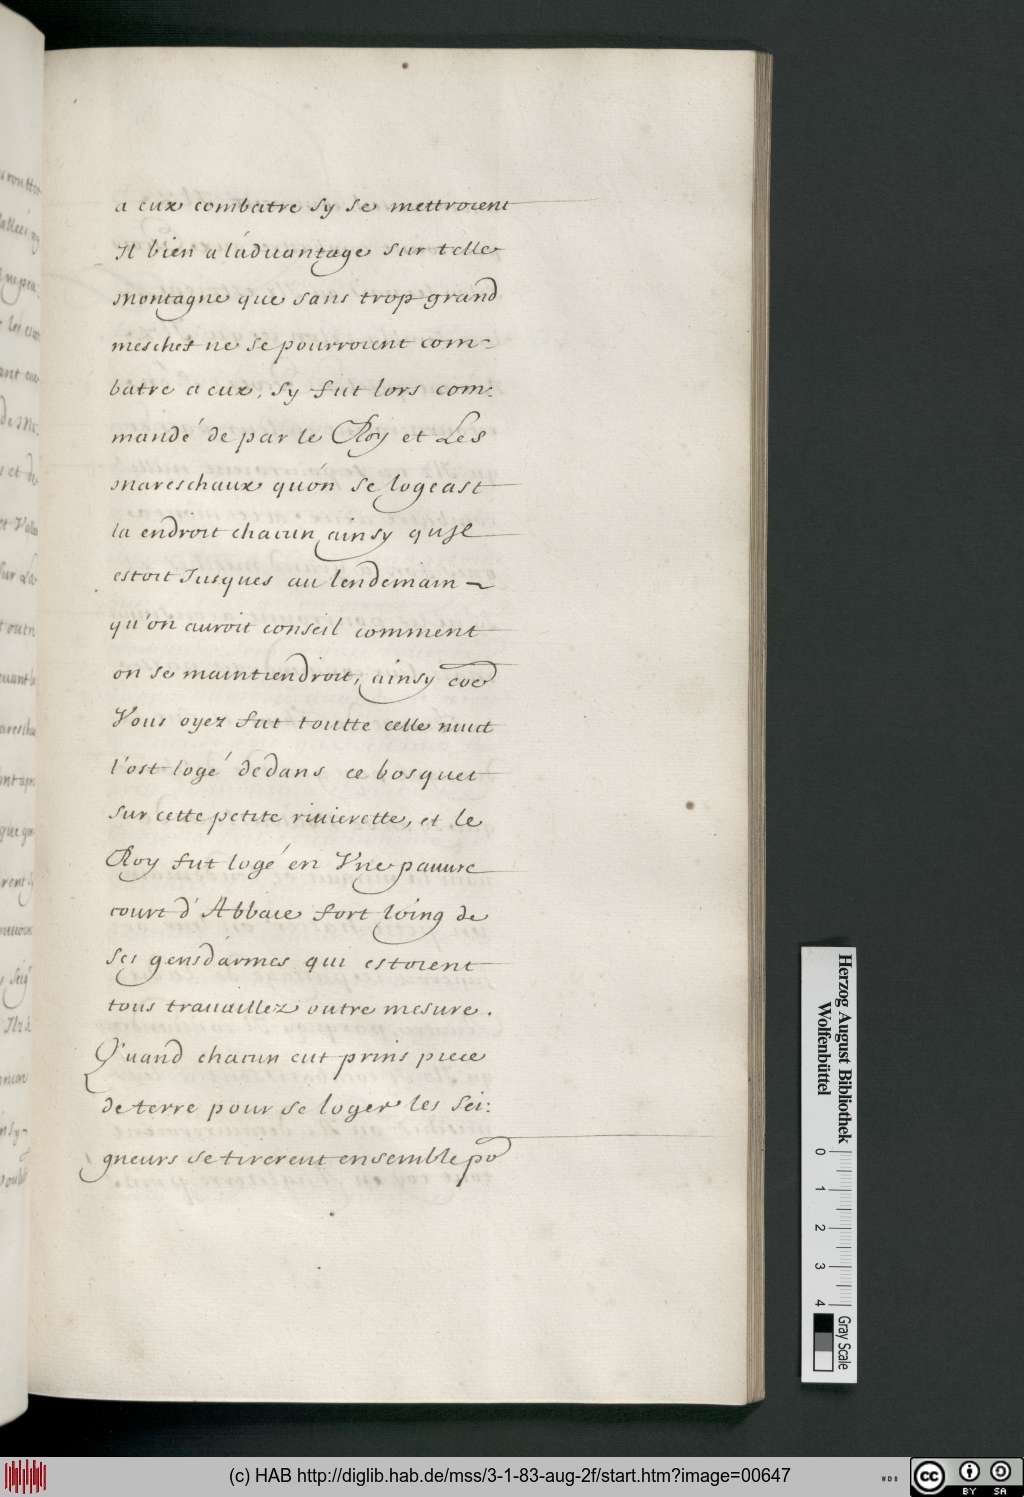 a eux combatre sy se mettroient
Il bien a l'aduantage sur telle
montagne que sans trop grand
meschef ne se pourroient com-
batre a eux, sy fut lors com:
mandé de par le Roy et Les
mareschaux qu'on se logeast
la endroit chacun ainsy qu Il
estoit Jusques au lendemain
qu'on auroit conseil comment
on se maintiendroit, ainsy cõe
Vous oyez fut toutte celle nuict
l'ost logé dedans ce bosquet
sur cette petite riuierette, et le
Roy fut logé en Vne pauure
court d'Abbaie fort loing de
ses gensdarmes qui estoient
tous trauaillez outre mesure.
Quand chacun eut prins piece
de terre pour se loger les sei:
gneurs se tirerent ensemble po
Herzog August Bibliothek
Wolfenbüttel
0 1 2 3 4
Gray Scale
(c) HAB http://diglib.hab.de/mss/3-1-83-aug-2f/start.htm?image=00647
WDB
cc BY SA